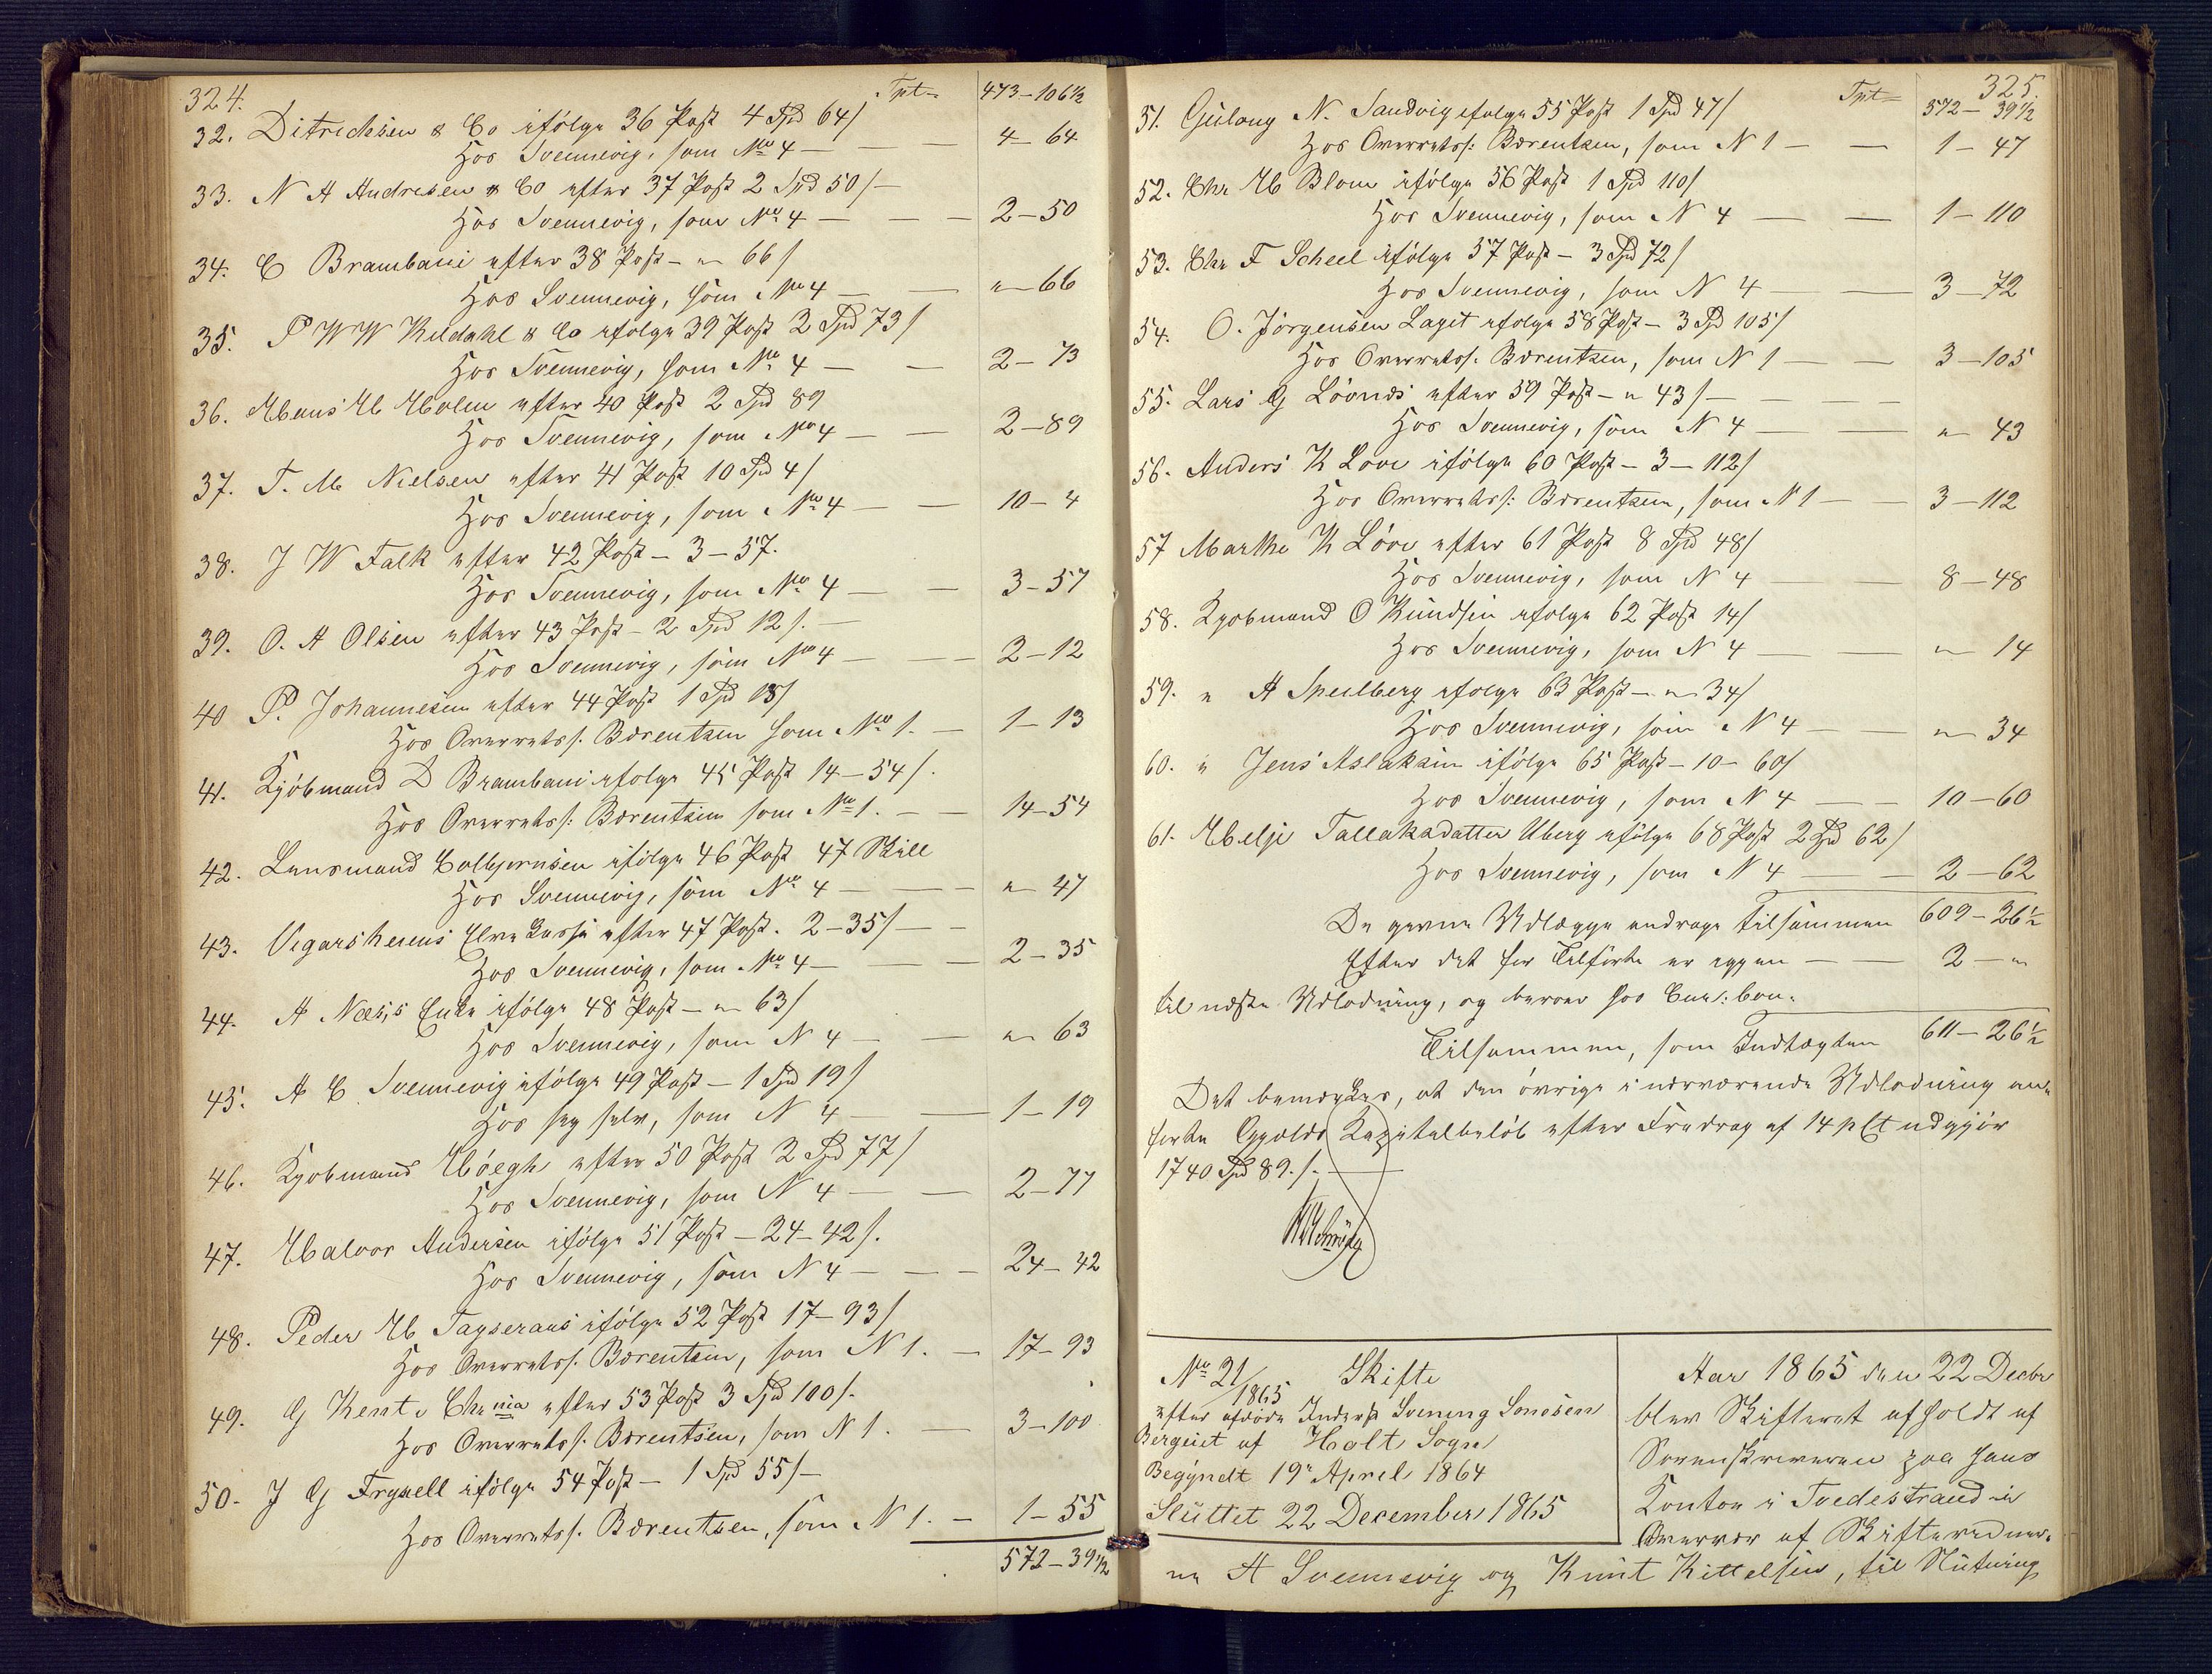 324.
Tpt= 473–106½
32. Ditrichsen & Co ifölge 36 Post 4 Spd 64/
Hos Svennevig, som No 4 — — — 4–64
33. N A Andresen & Co efter 37 Post 2 Spd 50/–
Hos Svennevig, som No 4 — — — 2–50
34. C Brambani efter 38 Post – " 66/
Hos Svennevig, som No 4 — — "–66
35. P W W Kildahl & Co ifolge 39 Post 2 Spd 73/
Hos Svennevig, som No 4 — — 2–73
36. Hans H Holm efter 40 Post 2 Spd 89
Hos Svennevig, som No 4 — — 2–89
37. T. M. Nielsen efter 41 Post 10 Spd 4/
Hos Svennevig, som No 4 — — 10–4
38. J W Falk efter 42 Post – 3–57.
Hos Svennevig, som No 4 — — 3–57
39. O. A Olsen efter 43 Post – 2 Spd 12/. —
Hos Svennevig, som No 4 — — 2–12
40 P. Johannesen efter 44 Post 1 Spd 13/
Hos Overretss. Bærentzen som No 1. — 1–13
41. Kjöbmand D Brambani ifolge 45 Post 14–54/.
Hos Overretss: Bærentzen som No 1. — — 14–54
42. Lensmand Colbjørnsen ifölge 46 Post 47 Skill
Hos Svennevig, som No 4 — — — " 47
43. Vegarsheiens Elvekasse efter 47 Post. 2–35/ — —
Hos Svennevig, som No 4 — — — 2–35
44. A Næss's Enke ifölge 48 Post – " 63/
Hos Svennevig, som N 4 — — " 63
45. A C Svennevig ifölge 49 Post – 1 Spd 19/
Hos sig selv, som N 4 — — 1–19
46. Kjobmand Höegh efter 50 Post 2 Spd 77/
Hos Svennevig, som N 4 — — 2–77
47. Halvor Andersen ifölge 51 Post – 24–42/.
Hos Svennevig, som N 4 — — — 24–42
48. Peder H ifölge 52 Post 17–93/
Hos Overretss. Bærentzen, som N 1. — 17–93
49. G Kent i Chr.nia efter 53 Post 3 Spd 100/.
Hos Overretss. Bærentzen, som N 1. — 3–100
50. J G Frysell ifölge 54 Post – 1 Spd 55/–
Hos Overretss. Bærentzen, som N 1. — 1–55
572–39½
325.
Tpt= 572–39½
51. Gulaug N. Sandvig ifolge 55 Post 1 Spd 47/
Hos Overretss: Bærentzen, som N 1 — — 1–47
52. Chr H Blom ifölge 56 Post 1 Spd 110/
Hos Svennevig, som N 4 — — 1–110
53. Chr F Scheel ifölge 57 Post – 3 Spd 72/
Hos Svennevig, som N 4 — — 3–72
54. O. Jörgensen Laget ifolge 58 Post – 3 Spd 105/
Hos Overretss. Bærentzen, som N 1 — — 3–105
55. Lars G efter 59 Post – " 43/ — — — —
Hos Svennevig, som N 4 — — " 43
56. Anders K Løvi ifölge 60 Post – 3–112/
Hos Overretss: Bærentzen, som N 1 — 3–112
57 Marthe K Lövi efter 61 Post 8 Spd 48/
Hos Svennevig, som N 4 — — 8–48
58. Kjobmand O Knudsen ifolge 62 Post 14/
Hos Svennevig, som N 4 — — " 14
59. " A Speilberg ifolge 63 Post – " 34/
Hos Svennevig, som N 4 — — " 34
60. " Jens Aslaksen ifölge 65 Post – 10–60/
Hos Svennevig, som N 4 — — 10–60
61. Helje Tallaksdatter Uberg ifölge 68 Post 2 Spd 62/
Hos Svennevig, som N 4 — — 2–62
De gjorte Udlægge andrage tilsammen 609–26½
Efter det før Tilførte er igjen — — 2–"
til næste Udlodning, og beroer hos
Tilsammen, som Indtægten 611–26½
Det bemærkes, at den övrige i nærværende Udlodning an-
førte Gjælds Kapitalbeløb efter Fradrag af 14 p Ct udgjør
1740 Spd 89./. —
No 21/1865 Skifte
efter afdøde Inderst Svening Sonesen
Berguet af Holt Sogn
Begyndt 19de April 1864
Sluttet 22 December 1865
Aar 1865 den 22 Decbr
blev Skifteret afholdt af
Sorenskriveren paa hans
Kontor i Tvedestrand i
Overvær af Skiftevidner-
ne A Svennevig og Knut Kittelsen, til Slutning